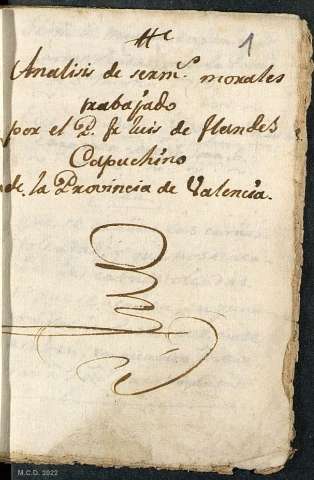 1
Analisis de sermˢ. morales
trabajado
por el P. fr luis de flandes
Capuchino
de la Provincia de Valencia.
M.C.D. 2022